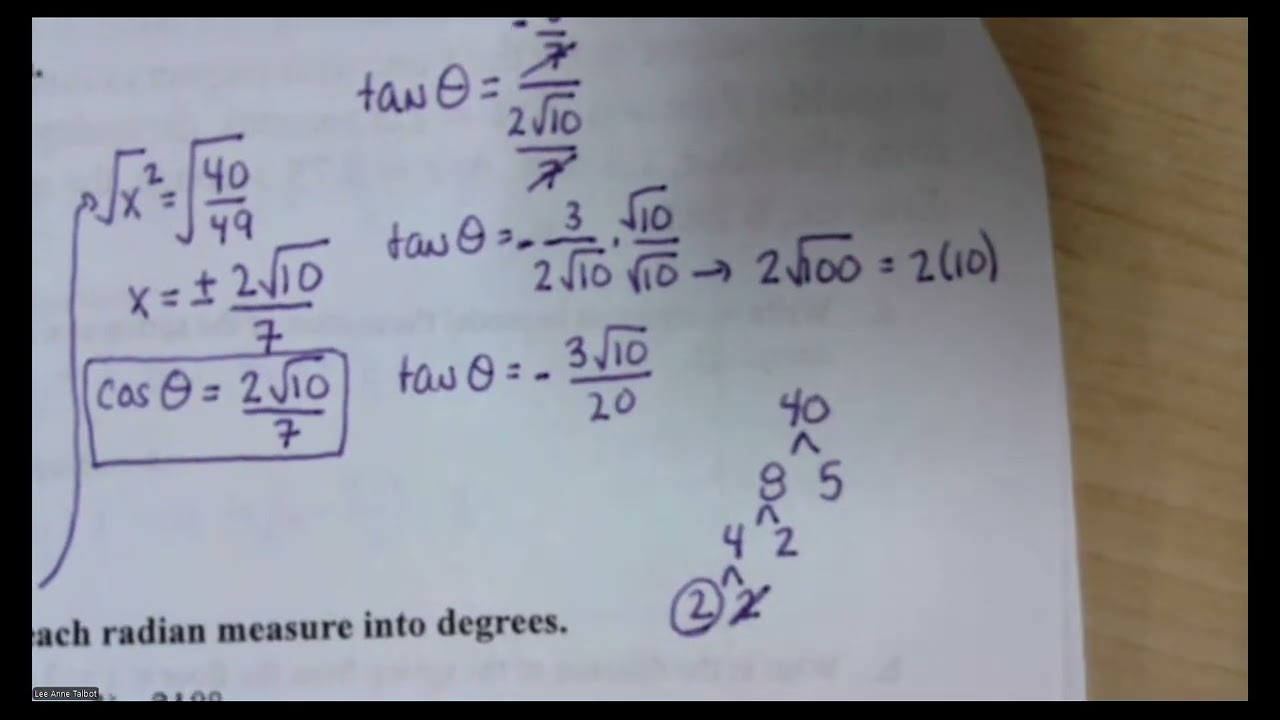 tan θ = 7 / 2√10 / 7
√x² = √40/49
x = ± 2√10/7
cos θ = 2√10/7
tan θ = - 3/2√10 · √10/√10 → 2√100 = 2(10)
tan θ = - 3√10/20
40
8 5
4 2
2 2
each radian measure into degrees.
Lee Anne Talbot